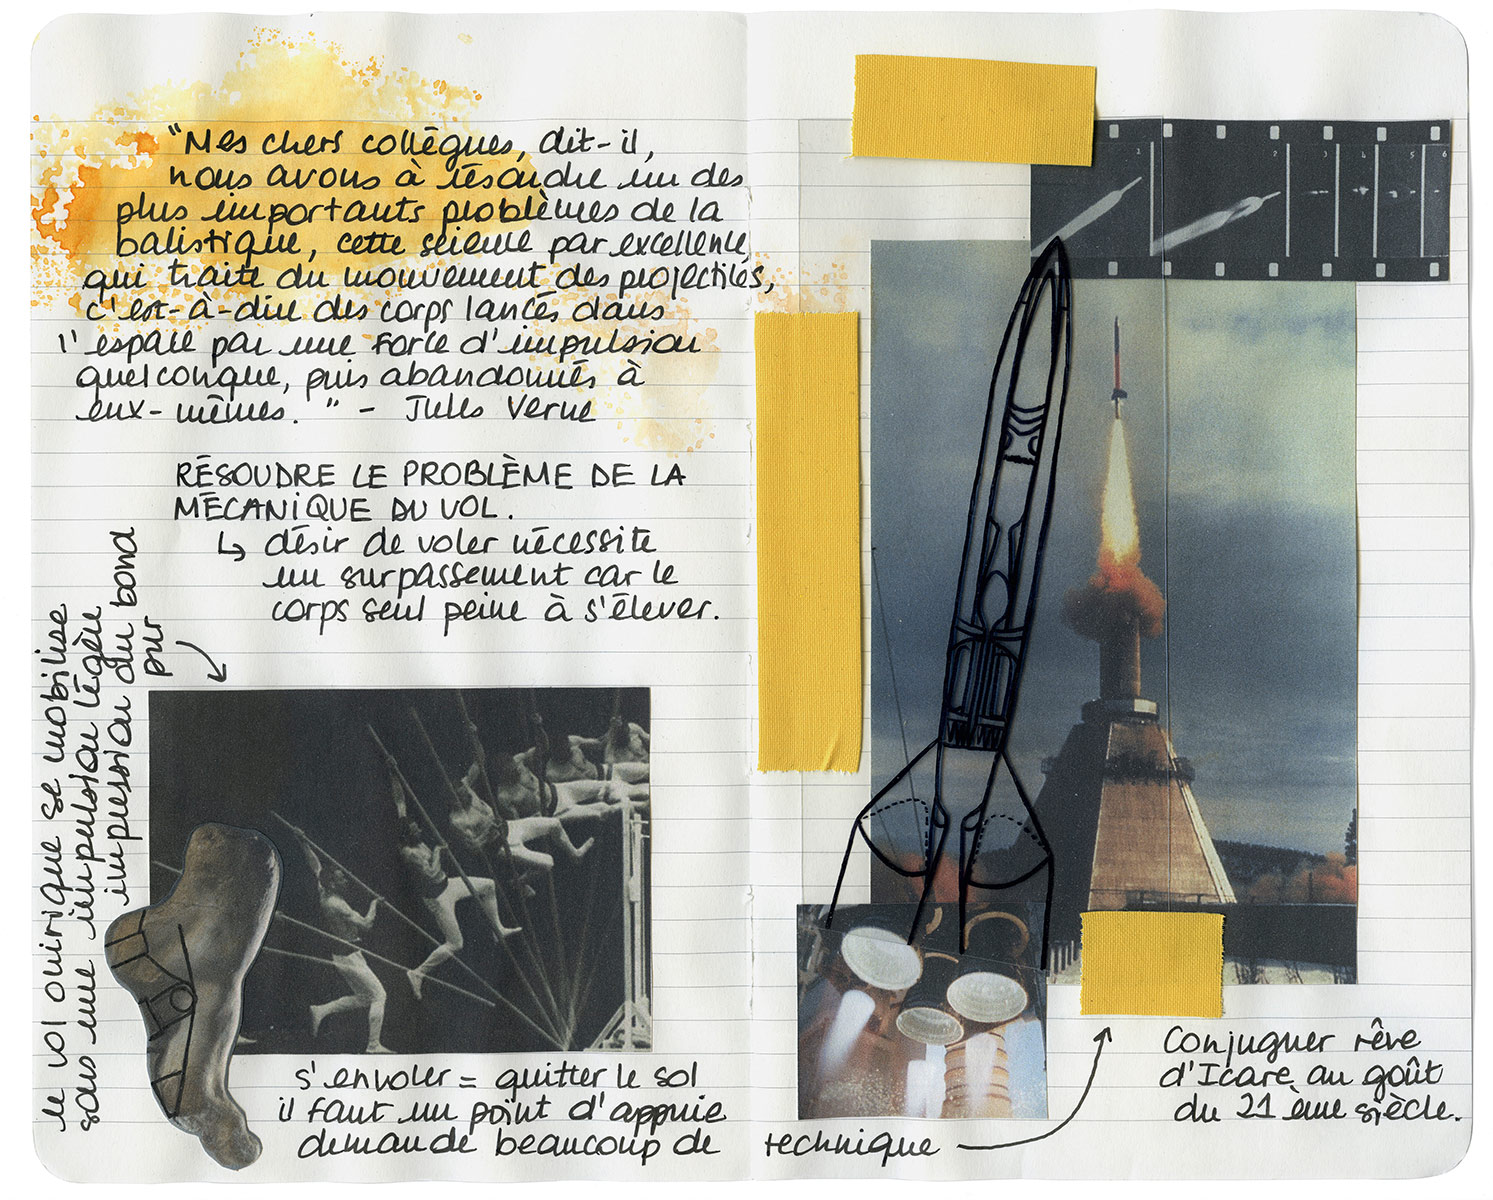 "Mes chers collègues, dit-il,
nous avons à résoudre un des
plus importants problèmes de la
balistique, cette science par excellence,
qui traite du mouvement des projectiles,
c'est-à-dire des corps lancés dans
l'espace par une force d'impulsion
quelconque, puis abandonnés à
eux-mêmes." - Jules Verne
RÉSOUDRE LE PROBLÈME DE LA
MÉCANIQUE DU VOL.
↳ désir de voler nécessite
un surpassement car le
corps seul peine à s'élever.
le vol onirique se mobilise
sous une impulsion légère
impression du bond
pur
s'envoler = quitter le sol
il faut un point d'appuie
demande beaucoup de technique
Conjuguer rêve
d'Icare au goût
du 21 ème siècle.
1 2 3 4 5 6